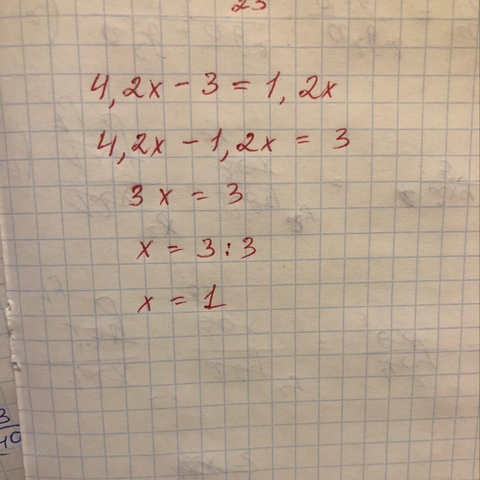 23
4,2x - 3 = 1,2x
4,2x - 1,2x = 3
3x = 3
x = 3:3
x = 1
3
40